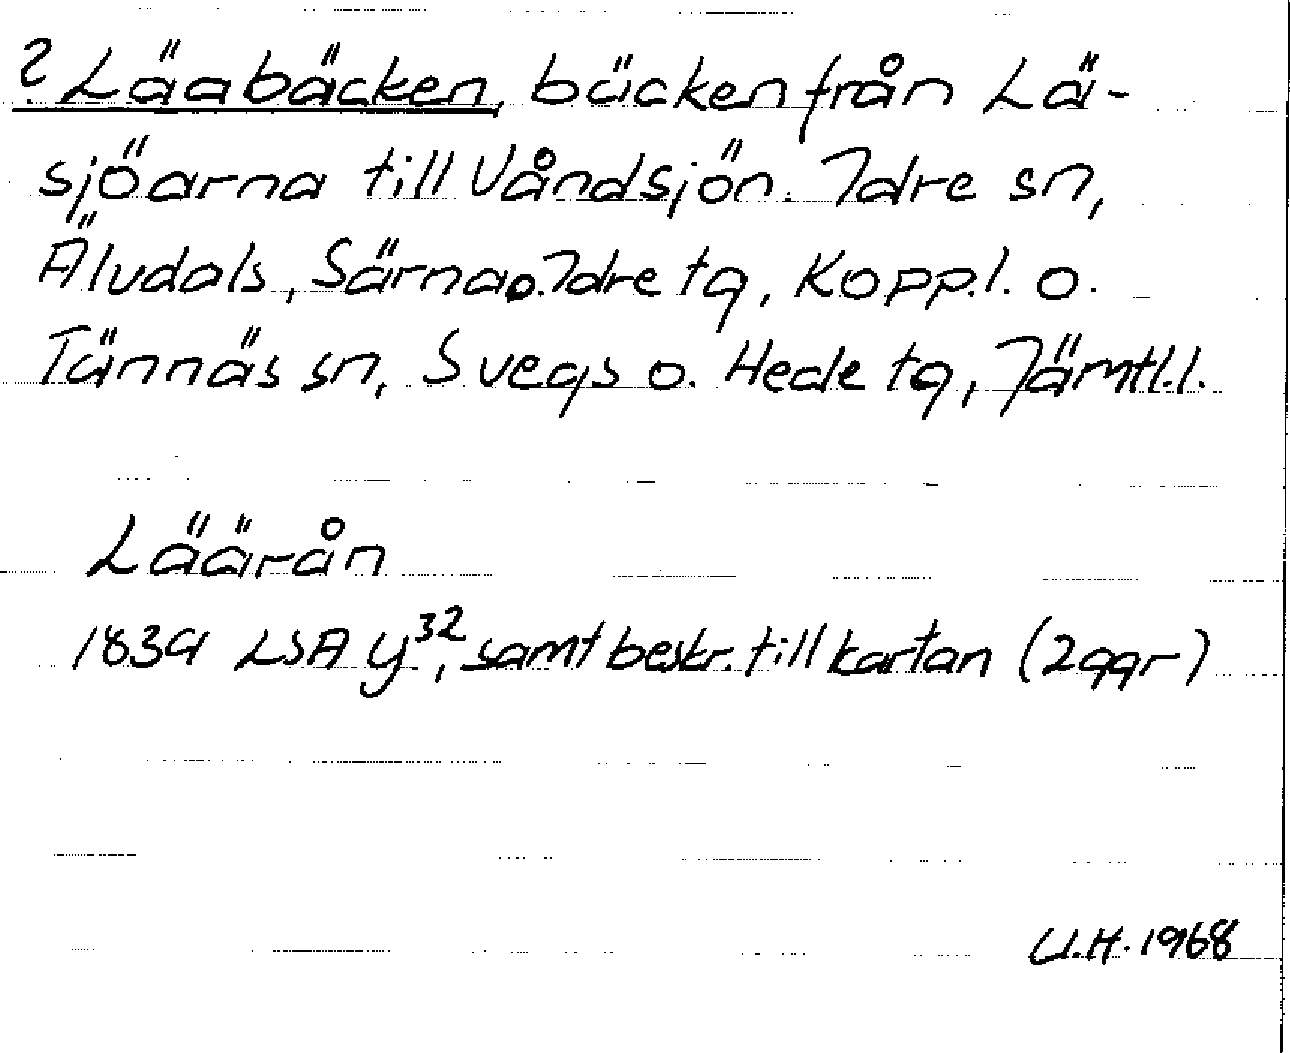 ? Läabäcken, bäcken från Lä-
sjöarna till Våndsjön. Idre sn,
Äludals, Särna o. Idre tg, Kopp.l. o.
Tännäs sn, Svegs o. Hede tg, Jämtl.l.
Läärån
1839 LSA y³², samt beskr. till kartan (2ggr)
U.H. 1968